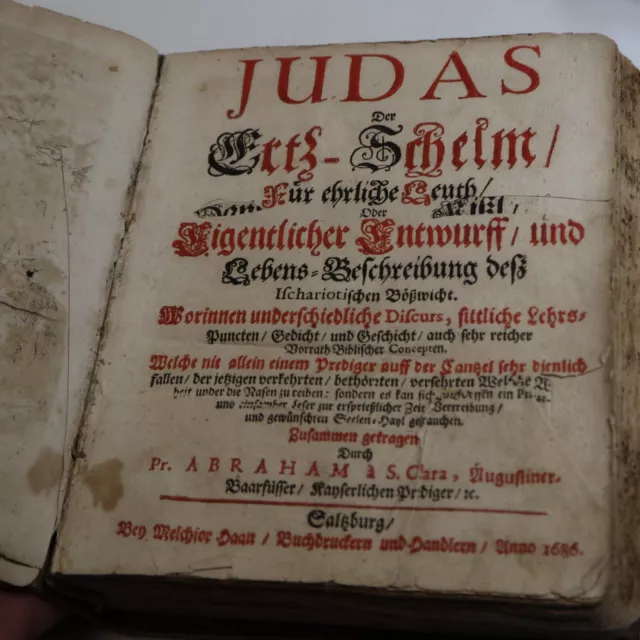 JUDAS
Der
Ertz-Schelm /
Für ehrliche Leuth /
Oder
Eigentlicher Entwurff / und
Lebens-Beschreibung deß
Ischariotischen Bößwicht.
Worinnen underschiedliche Discurs, sittliche Lehrs-
Puncten / Gedicht / und Geschicht / auch sehr reicher
Vorrath Biblischer Concepten.
Welche nit allein einem Prediger auff der Cantzel sehr dienlich
fallen / der jetzigen verkehrten / bethörten / versehrten
under die Nasen zu reiben: sondern es kan sich ein
zur ersprießlicher Zeit Vertreibung /
und gewünschten Seelen-Hayl gebrauchen.
Zusammen getragen
Durch
Pr. ABRAHAM à S. Clara, Augustiner-
Baarfüsser / Kayserlichen Prediger / ꝛc.
Saltzburg /
Bey Melchior Haan / Buchdruckern und Handlern / Anno 1686.